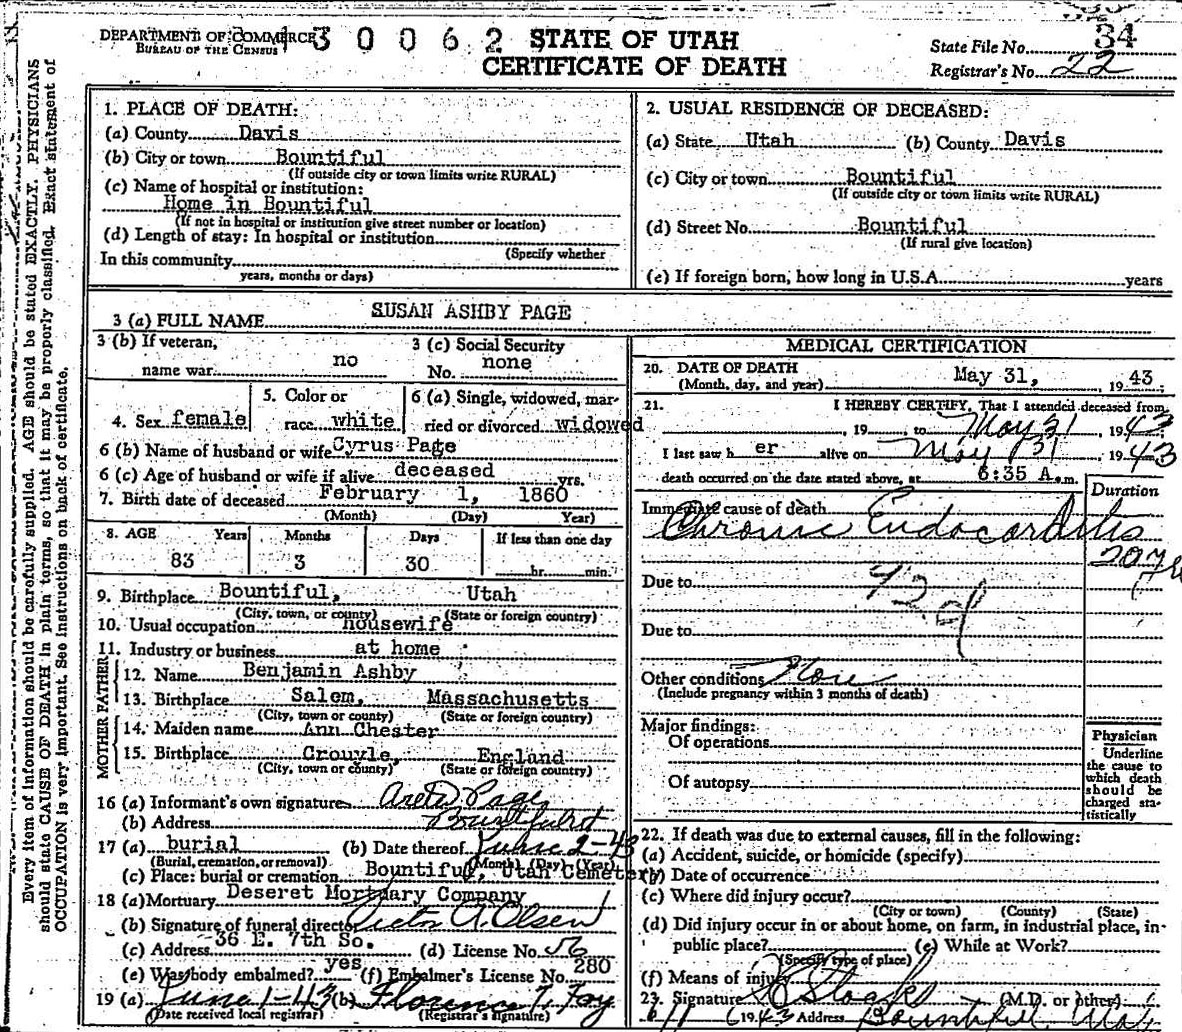 DEPARTMENT OF COMMERCE
BUREAU OF THE CENSUS
30062
STATE OF UTAH
CERTIFICATE OF DEATH
State File No. 34
Registrar's No. 22
Every item of information should be carefully supplied. AGE should be stated EXACTLY. PHYSICIANS
should state CAUSE OF DEATH in plain terms, so that it may be properly classified. Exact statement of
OCCUPATION is very important. See instructions on back of certificate.
1. PLACE OF DEATH:
(a) County Davis
(b) City or town Bountiful
(If outside city or town limits write RURAL)
(c) Name of hospital or institution:
Home in Bountiful
(If not in hospital or institution give street number or location)
(d) Length of stay: In hospital or institution
(Specify whether
In this community
years, months or days)
2. USUAL RESIDENCE OF DECEASED:
(a) State Utah (b) County Davis
(c) City or town Bountiful
(If outside city or town limits write RURAL)
(d) Street No. Bountiful
(If rural give location)
(e) If foreign born, how long in U.S.A. years
3 (a) FULL NAME SUSAN ASHBY PAGE
3 (b) If veteran,
name war no
3 (c) Social Security
No. none
4. Sex female
5. Color or
race white
6 (a) Single, widowed, mar-
ried or divorced widowed
6 (b) Name of husband or wife Cyrus Page
6 (c) Age of husband or wife if alive deceased yrs.
7. Birth date of deceased February 1, 1860
(Month) (Day) Year)
8. AGE Years Months Days If less than one day
83 3 30 hr. min.
9. Birthplace Bountiful, Utah
(City, town, or county) (State or foreign country)
10. Usual occupation housewife
11. Industry or business at home
FATHER
12. Name Benjamin Ashby
13. Birthplace Salem, Massachusetts
(City, town or county) (State or foreign country)
MOTHER
14. Maiden name Ann Chester
15. Birthplace Crouyle, England
(City, town or county) (State or foreign country)
16 (a) Informant's own signature Page
(b) Address
17 (a) burial (b) Date thereof June 2-43
(Burial, cremation, or removal) (Month) (Day) (Year)
(c) Place: burial or cremation Bountiful, Utah Cemetery
18 (a) Mortuary Deseret Mortuary Company
(b) Signature of funeral director A. Olsen
(c) Address 36 E. 7th So. (d) License No. 56
(e) Was body embalmed? yes (f) Embalmer's License No. 280
19 (a) June 1-43 (b) Florence
(Date received local registrar) (Registrar's signature)
MEDICAL CERTIFICATION
20. DATE OF DEATH
(Month, day, and year) May 31, 1943
21. I HEREBY CERTIFY, That I attended deceased from
19 to May 31, 1943
I last saw h er alive on May 31 1943
death occurred on the date stated above, at 6:35 A.m.
Duration
Immediate cause of death
Chronic Endocarditis
Due to
Due to
Other conditions None
(Include pregnancy within 3 months of death)
Major findings:
Of operations
Of autopsy
Physician
Underline
the cause to
which death
should be
charged sta-
tistically
22. If death was due to external causes, fill in the following:
(a) Accident, suicide, or homicide (specify)
(b) Date of occurrence
(c) Where did injury occur?
(City or town) (County) (State)
(d) Did injury occur in or about home, on farm, in industrial place, in-
public place? (e) While at Work?
(Specify type of place)
(f) Means of injury
23. Signature (M.D. or other)
1943 Address Bountiful